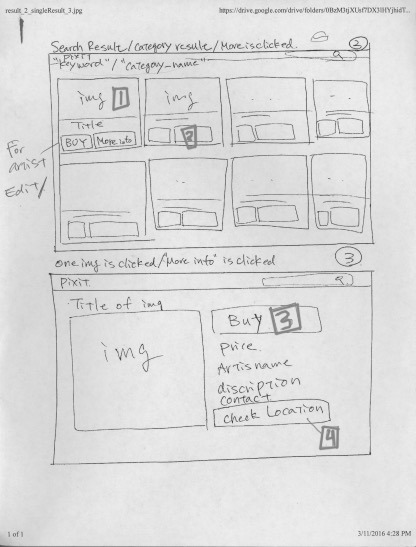 result_2_singleResult_3.jpg
Search Result/Category result/More is clicked. 2
Pixit
"keyword"/"Category_name"
img 1
img
Title
BUY More info
2
For artist
Edit/
one img is clicked/"More info" is clicked 3
Pixit
Title of img
img
Buy 3
Price.
Artisname
discription
contact
Check Location
4
1 of 1
3/11/2016 4:28 PM